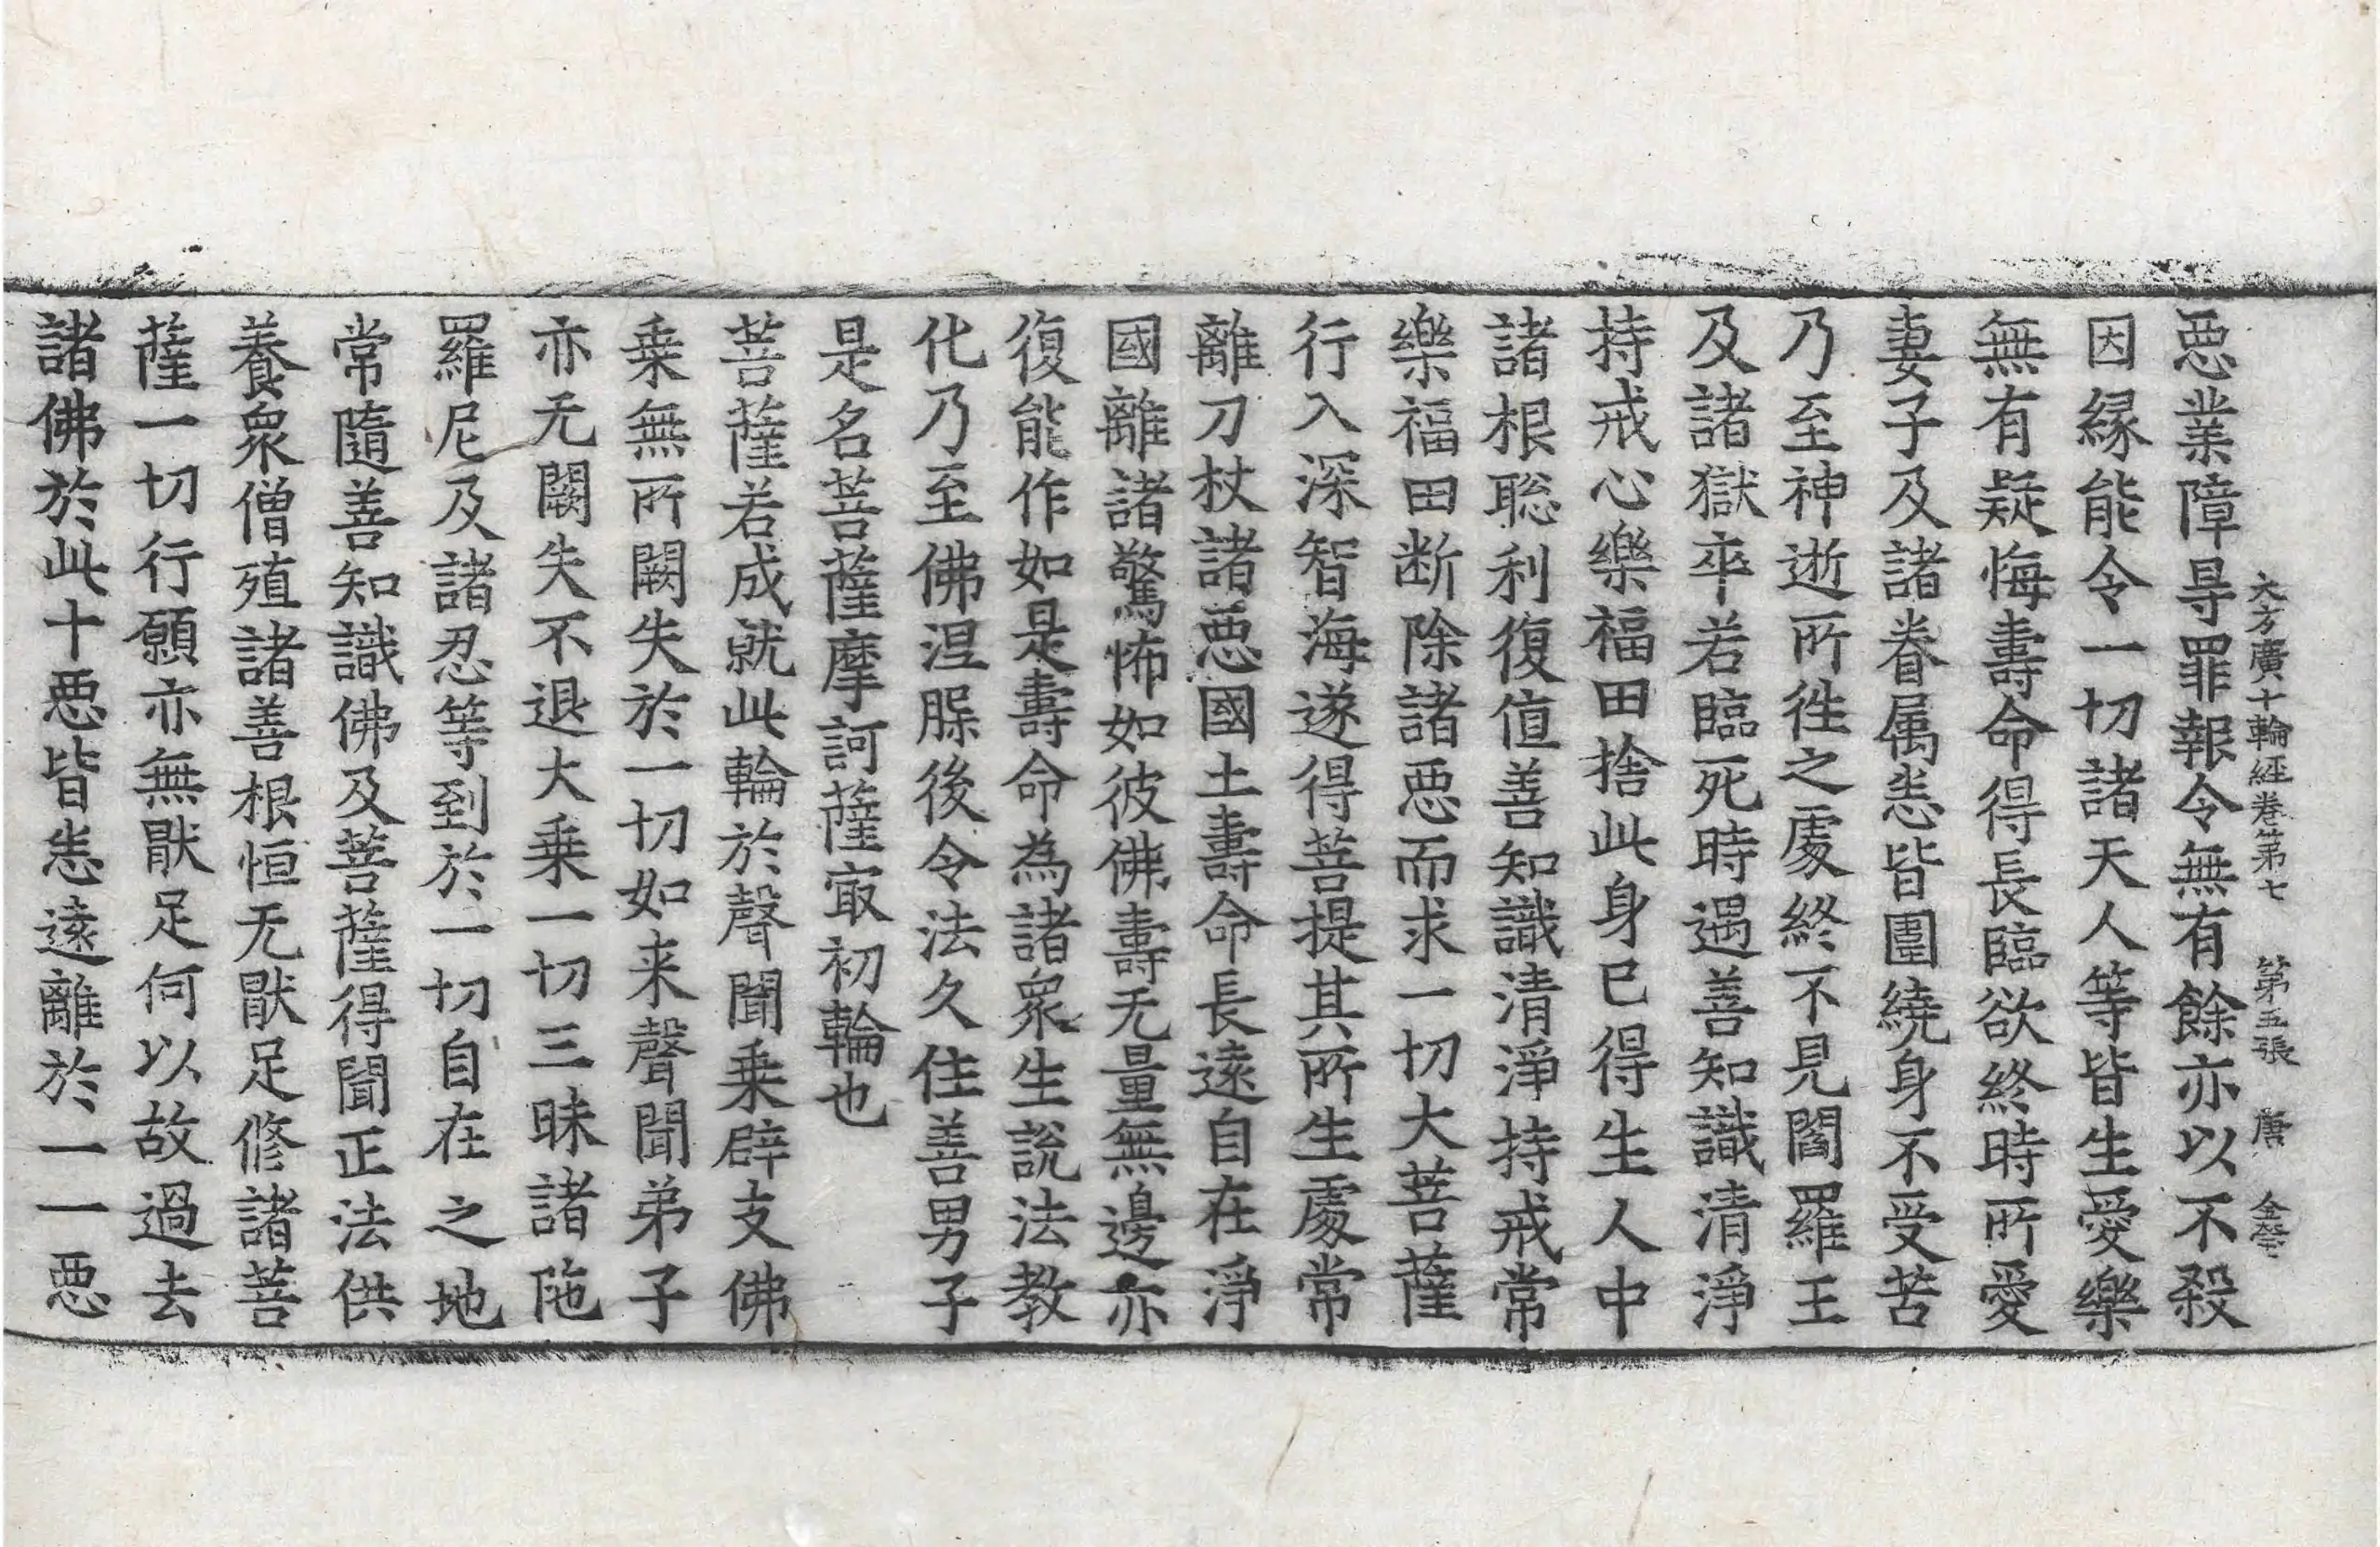 大方廣十輪経巻第七　第五張　唐
悪業障㝵罪報令無有餘亦以不殺
因縁能令一切諸天人等皆生愛樂
無有疑悔壽命得長臨欲終時所愛
妻子及諸眷属恚皆圍繞身不受苦
乃至神逝所徃之處終不見閻羅王
及諸獄卒若臨死時遇善知識清淨
持戒心樂福田捨此身已得生人中
諸根聡利復值善知識清淨持戒常
樂福田断除諸悪而求一切大菩薩
行入深智海遂得菩提其所生處常
離刀杖諸悪國土壽命長遠自在淨
國離諸驚怖如彼佛壽无量無邊亦
復能作如是壽命為諸衆生說法教
化乃至佛涅䏶後令法久住善男子
是名菩薩摩訶薩㝡初輪也
菩薩若成就此輪於聲聞乗辟支佛
乗無所闕失於一切如来聲聞弟子
亦无闕失不退大乗一切三昧諸陁
羅尼及諸忍等到於一切自在之地
常隨善知識佛及菩薩得聞正法供
養衆僧殖諸善根恒无猒足修諸菩
薩一切行願亦無猒足何以故過去
諸佛於此十悪皆恚遠離於一一悪